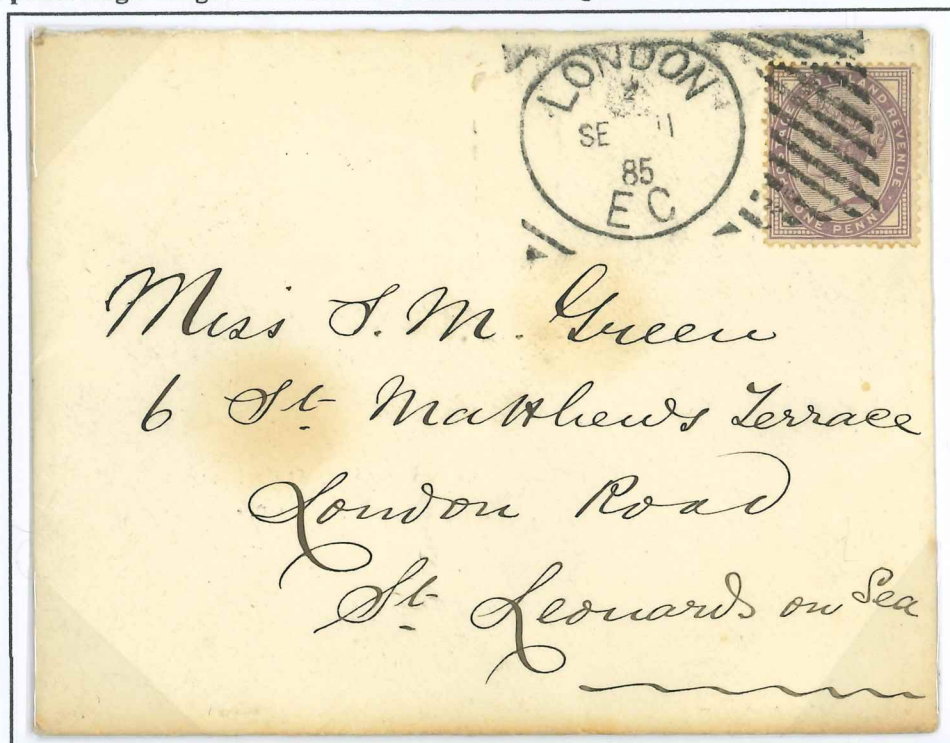 LONDON
SE 11
85
EC
POSTAGE AND INLAND REVENUE
ONE PENNY
Miss S. M. Green
6 St. Matthews Terrace
London Road
St. Leonards on Sea